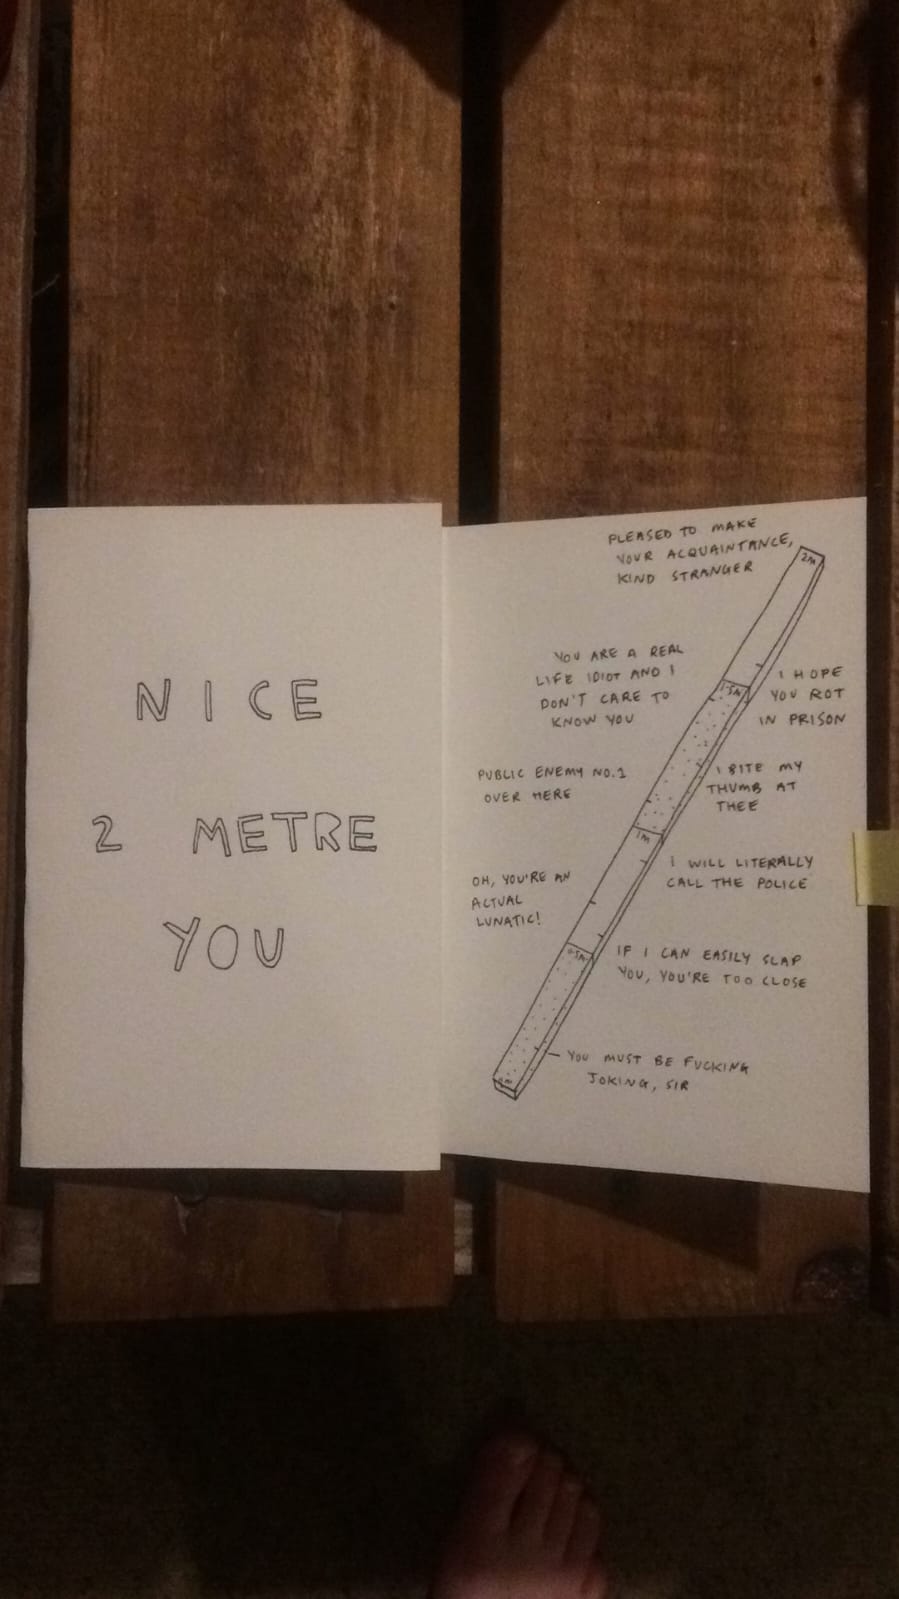 NICE
2 METRE
YOU
PLEASED TO MAKE
YOUR ACQUAINTANCE,
KIND STRANGER
2M
YOU ARE A REAL
LIFE IDIOT AND I
DON'T CARE TO
KNOW YOU
1.5M
I HOPE
YOU ROT
IN PRISON
PUBLIC ENEMY NO.1
OVER HERE
I BITE MY
THUMB AT
THEE
1M
OH, YOU'RE AN
ACTUAL
LUNATIC!
I WILL LITERALLY
CALL THE POLICE
0.5M
IF I CAN EASILY SLAP
YOU, YOU'RE TOO CLOSE
YOU MUST BE FUCKING
JOKING, SIR
0M